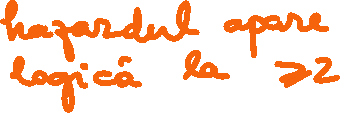 hazardul apare
logică la ≥2